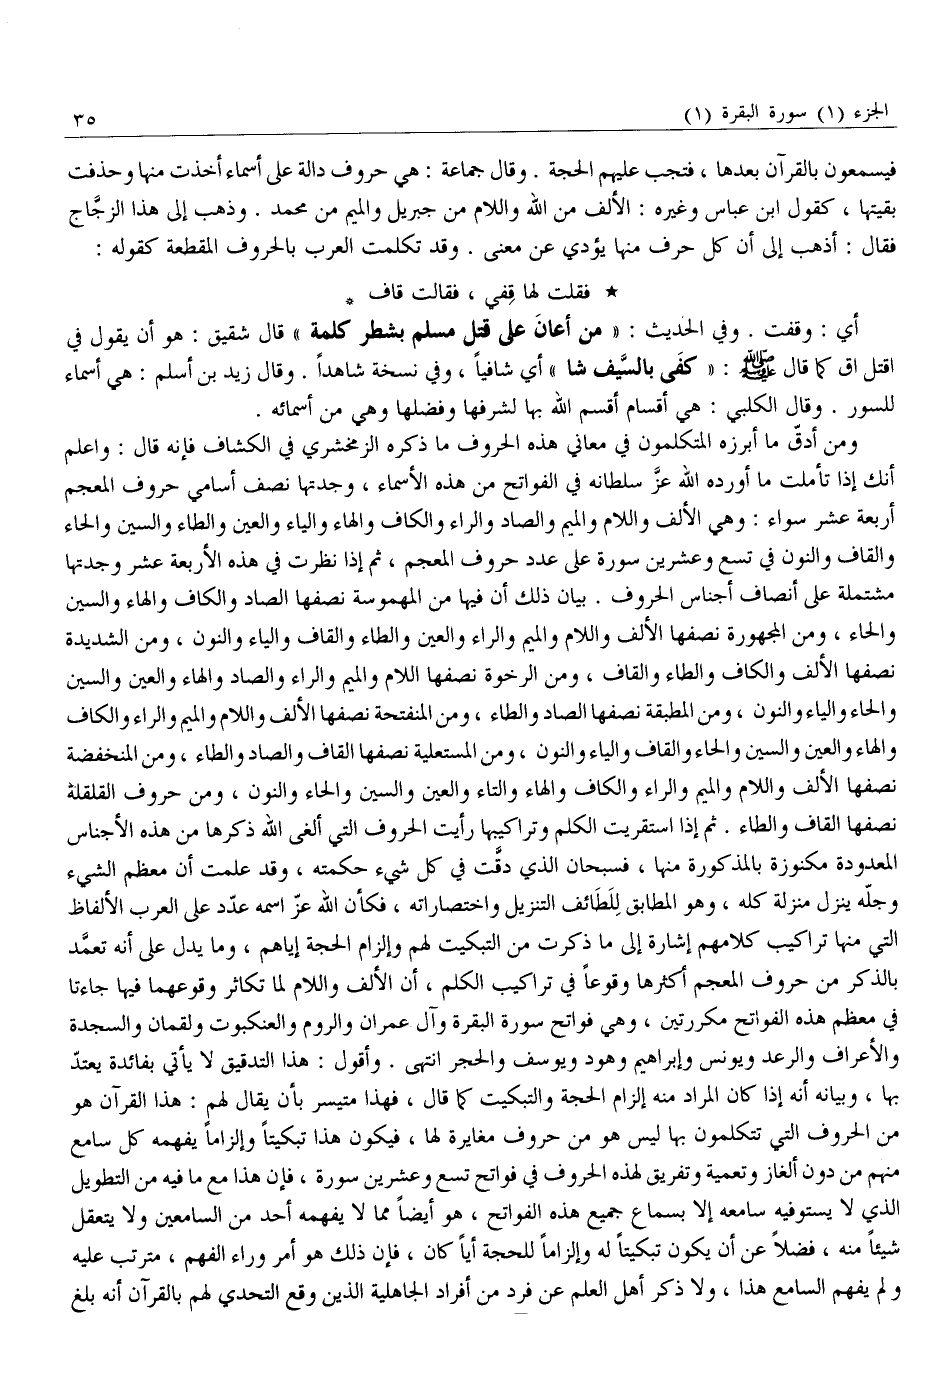 الجزء (١) سورة البقرة (١) ٣٥
فيسمعون بالقرآن بعدها ، فتجب عليهم الحجة . وقال جماعة : هي حروف دالة على أسماء أخذت منها وحذفت
بقيتها ، كقول ابن عباس وغيره : الألف من الله واللام من جبريل والميم من محمد . وذهب إلى هذا الزجَّاج
فقال : أذهب إلى أن كل حرف منها يؤدي عن معنى . وقد تكلمت العرب بالحروف المقطعة كقوله :
★ فقلت لها قِفي ، فقالت قاف *
أي : وقفت . وفي الحديث : « من أعانَ على قتل مسلم بشطر كلمة » قال شقيق : هو أن يقول في
اقتل اق كما قال ﷺ : « كفَى بالسَّيف شا » أي شافياً ، وفي نسخة شاهداً . وقال زيد بن أسلم : هي أسماء
للسور . وقال الكلبي : هي أقسام أقسم الله بها لشرفها وفضلها وهي من أسمائه .
ومن أدقّ ما أبرزه المتكلمون في معاني هذه الحروف ما ذكره الزمخشري في الكشاف فإنه قال : واعلم
أنك إذا تأملت ما أورده الله عزَّ سلطانه في الفواتح من هذه الأسماء ، وجدتها نصف أسامي حروف المعجم
أربعة عشر سواء : وهي الألف واللام والميم والصاد والراء والكاف والهاء والياء والعين والطاء والسين والحاء
والقاف والنون في تسع وعشرين سورة على عدد حروف المعجم ، ثم إذا نظرت في هذه الأربعة عشر وجدتها
مشتملة على أنصاف أجناس الحروف . بيان ذلك أن فيها من المهموسة نصفها الصاد والكاف والهاء والسين
والحاء ، ومن المجهورة نصفها الألف واللام والميم والراء والعين والطاء والقاف والياء والنون ، ومن الشديدة
نصفها الألف والكاف والطاء والقاف ، ومن الرخوة نصفها اللام والميم والراء والصاد والهاء والعين والسين
والحاء والياء والنون ، ومن المطبقة نصفها الصاد والطاء ، ومن المنفتحة نصفها الألف واللام والميم والراء والكاف
والهاء والعين والسين والحاء والقاف والياء والنون ، ومن المستعلية نصفها القاف والصاد والطاء ، ومن المنخفضة
نصفها الألف واللام والميم والراء والكاف والهاء والتاء والعين والسين والحاء والنون ، ومن حروف القلقلة
نصفها القاف والطاء . ثم إذا استقريت الكلم وتراكيبها رأيت الحروف التي ألغى الله ذكرها من هذه الأجناس
المعدودة مكنوزة بالمذكورة منها ، فسبحان الذي دقَّت في كل شيء حكمته ، وقد علمت أن معظم الشيء
وجلّه ينزل منزلة كله ، وهو المطابق لِلَطَائف التنزيل واختصاراته ، فكأن الله عزّ اسمه عدّد على العرب الألفاظ
التي منها تراكيب كلامهم إشارة إلى ما ذكرت من التبكيت لهم وإلزام الحجة إياهم ، وما يدل على أنه تعمَّد
بالذكر من حروف المعجم أكثرها وقوعاً في تراكيب الكلم ، أن الألف واللام لما تكاثر وقوعهما فيها جاءتا
في معظم هذه الفواتح مكررتين ، وهي فواتح سورة البقرة وآل عمران والروم والعنكبوت ولقمان والسجدة
والأعراف والرعد ويونس وإبراهيم وهود ويوسف والحجر انتهى . وأقول : هذا التدقيق لا يأتي بفائدة يعتدّ
بها ، وبيانه أنه إذا كان المراد منه إلزام الحجة والتبكيت كما قال ، فهذا متيسر بأن يقال لهم : هذا القرآن هو
من الحروف التي تتكلمون بها ليس هو من حروف مغايرة لها ، فيكون هذا تبكيتاً وإلزاماً يفهمه كل سامع
منهم من دون ألغاز وتعمية وتفريق لهذه الحروف في فواتح تسع وعشرين سورة ، فإن هذا مع ما فيه من التطويل
الذي لا يستوفيه سامعه إلا بسماع جميع هذه الفواتح ، هو أيضاً مما لا يفهمه أحد من السامعين ولا يتعقل
شيئاً منه ، فضلاً عن أن يكون تبكيتاً له وإلزاماً للحجة أياً كان ، فإن ذلك هو أمر وراء الفهم ، مترتب عليه
ولم يفهم السامع هذا ، ولا ذكر أهل العلم عن فرد من أفراد الجاهلية الذين وقع التحدي لهم بالقرآن أنه بلغ